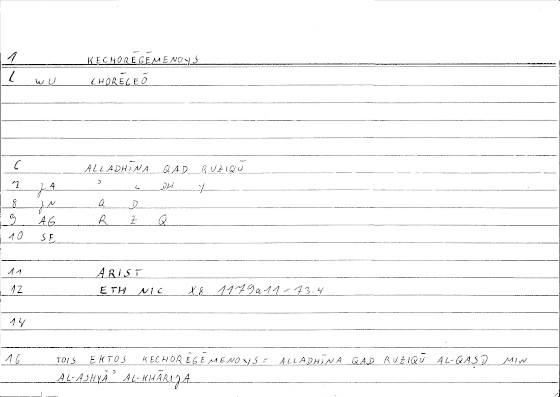 1 KECHORĒGĒMENOYS
L WU CHORĒGEŌ
6 ALLADHĪNA QAD RUZIQŪ
7 JA ʾ L DH Y
8 JN Q D
9 AG R Z Q
10 SF
11 ARIST
12 ETH NIC X8 1179a11-13.4
14
16 TOIS EKTOS KECHORĒGĒMENOYS = ALLADHĪNA QAD RUZIQŪ AL-QAṢD MIN
AL-ASHYĀʾ AL-KHĀRIJA